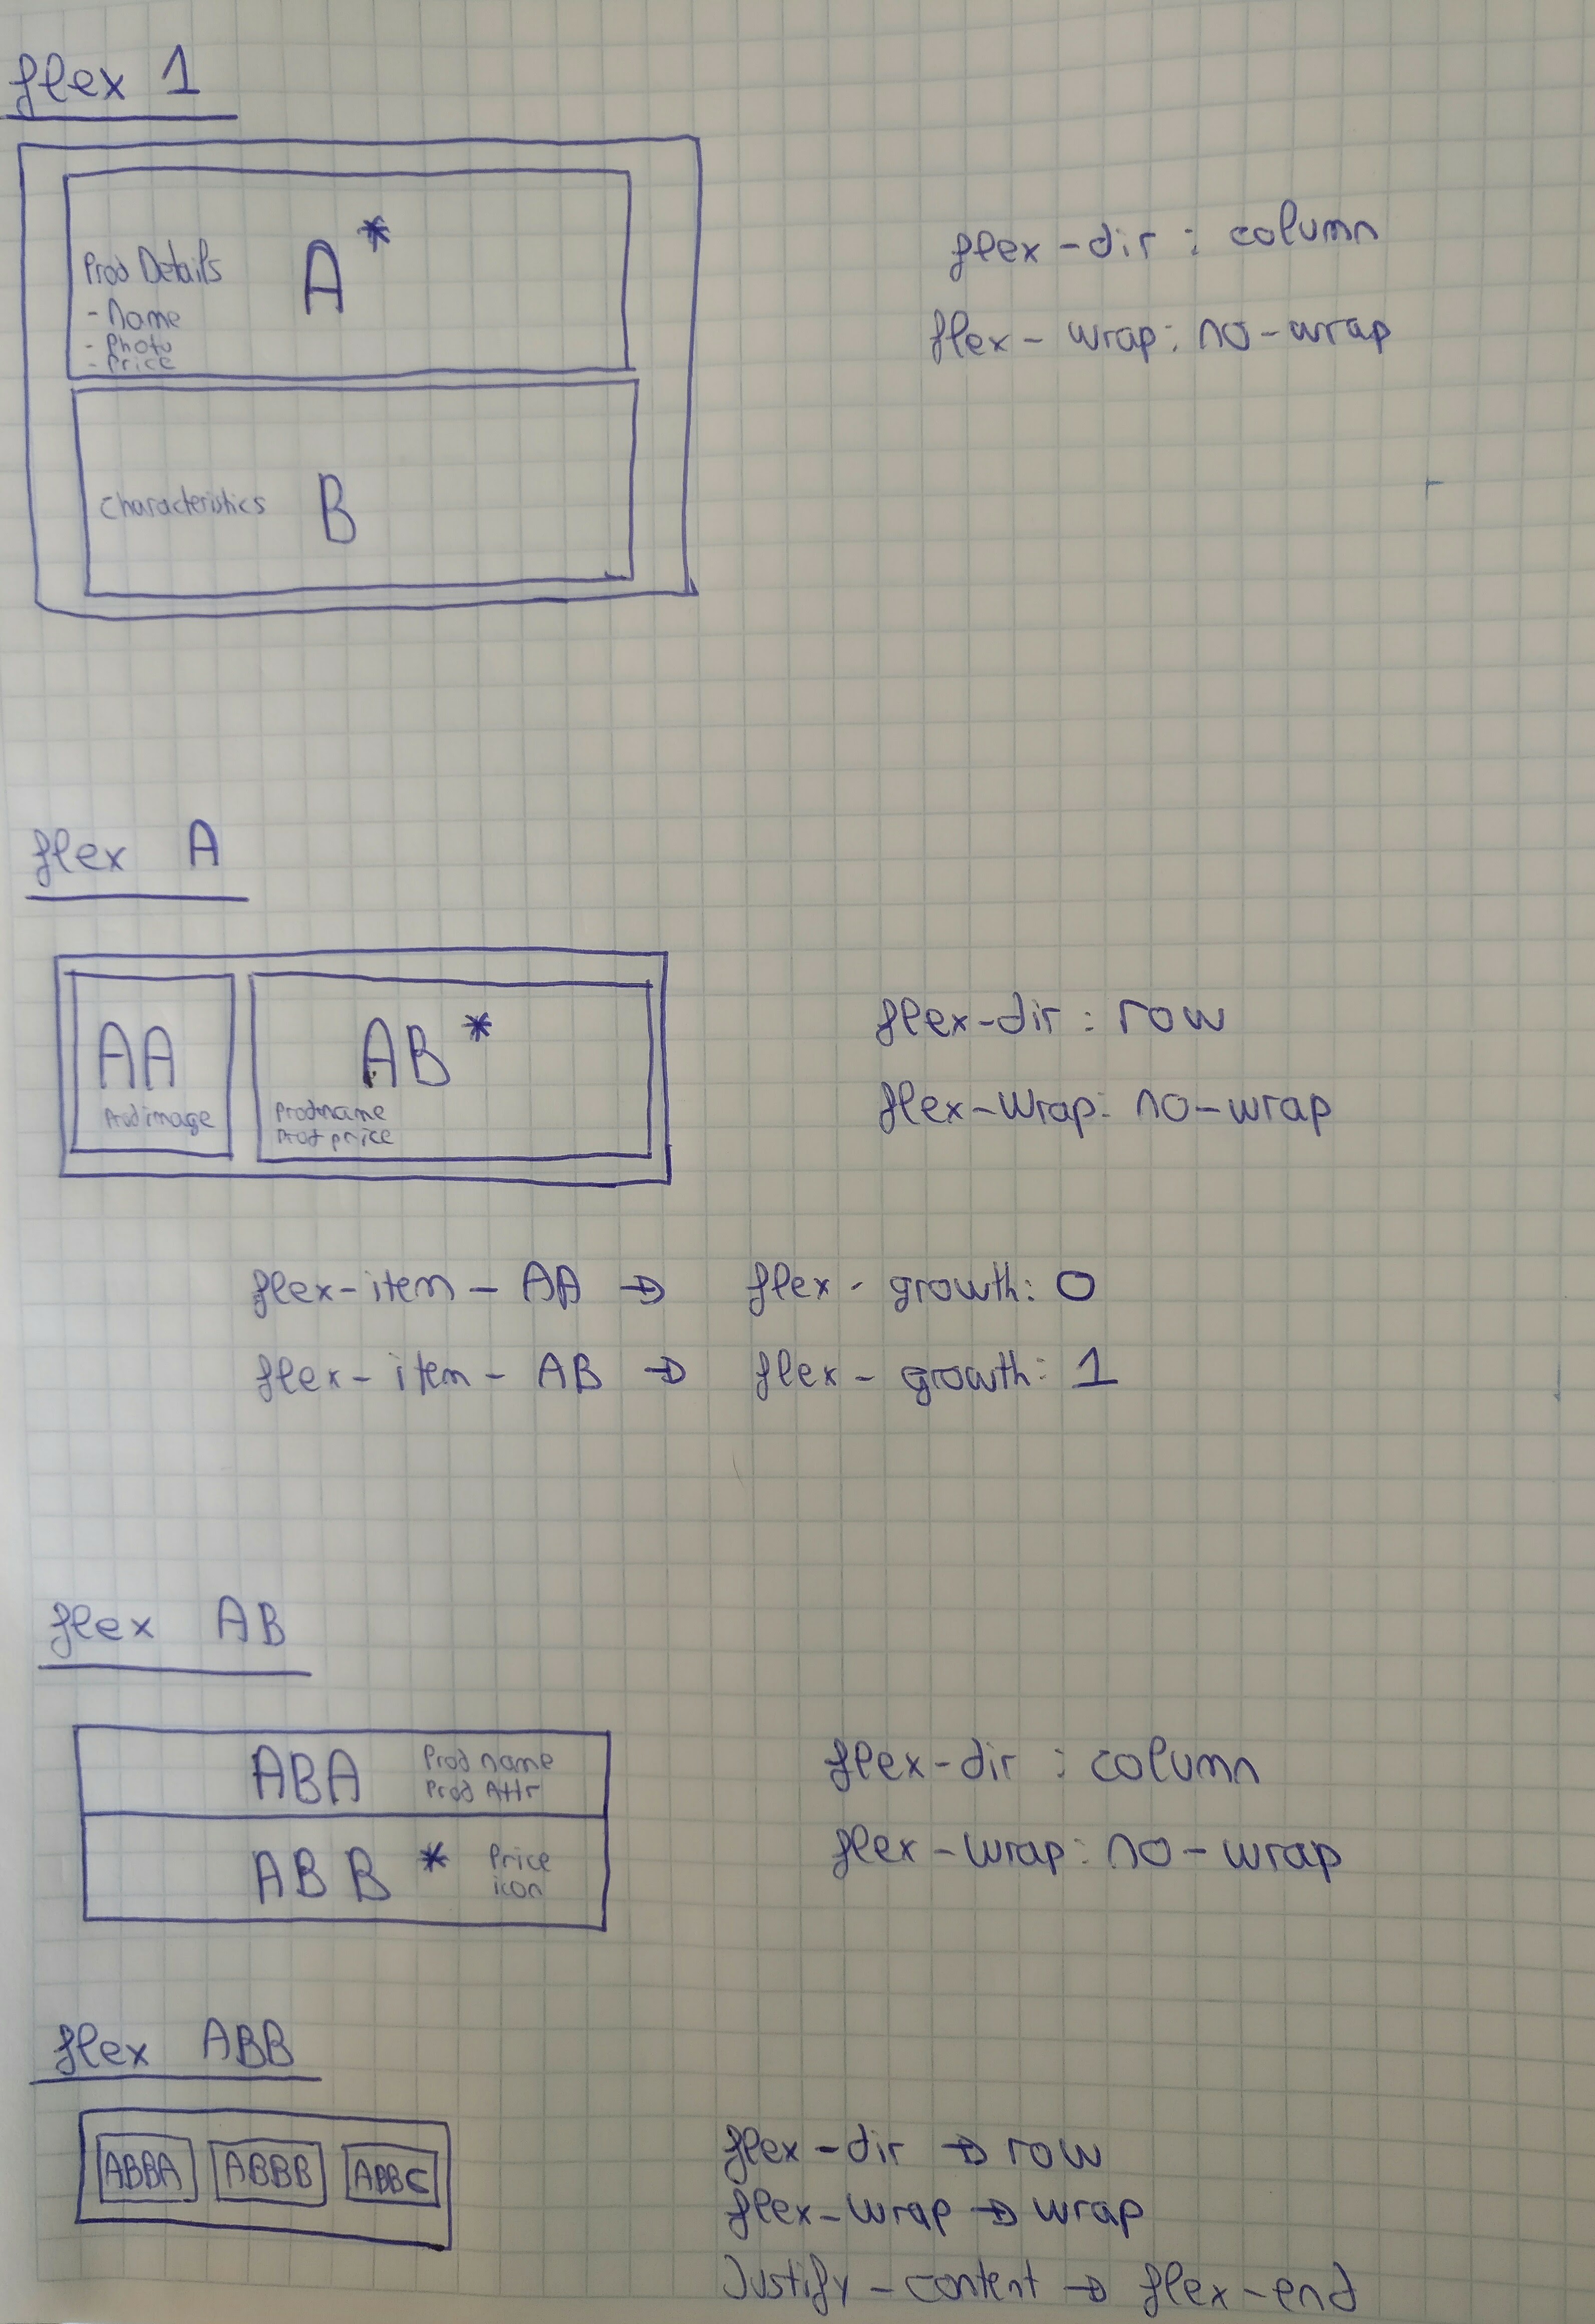 flex 1
A *
Prod Details
- Name
- Photo
- Price
flex-dir : column
flex-wrap: no-wrap
Characteristics B
flex A
AA
Prod image
AB *
Prod name
Prod price
flex-dir : row
flex-wrap: no-wrap
flex-item-AA → flex-growth: 0
flex-item-AB → flex-growth: 1
flex AB
ABA Prod name
Prod Attr
ABB * Price
icon
flex-dir : column
flex-wrap: no-wrap
flex ABB
ABBA ABBB ABBC
flex-dir → row
flex-wrap → wrap
Justify-content → flex-end